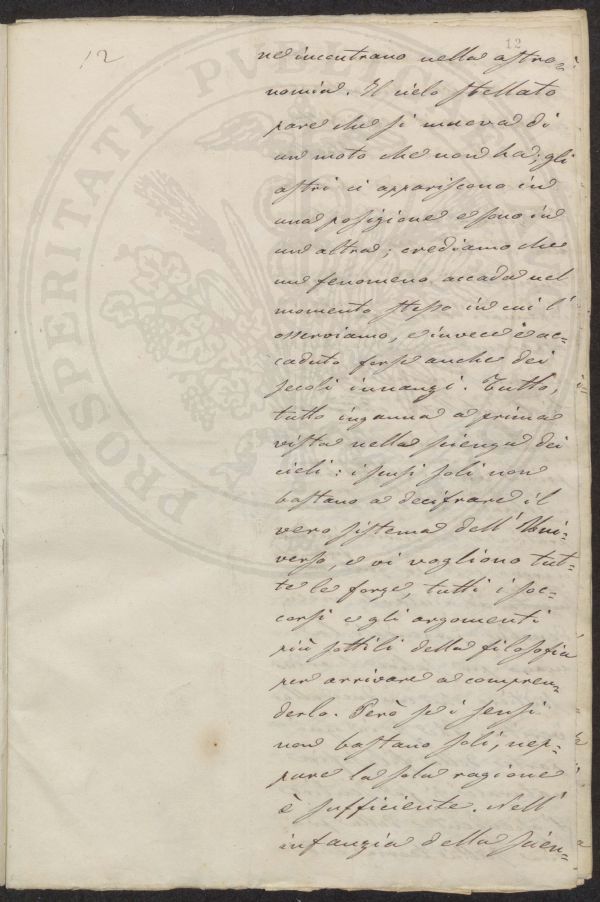 12
12
ne incontrano nella astro-
nomia. Il cielo stellato
pare che si mueva di
un moto che non ha; gli
astri ci appariscono in
una posizione e sono in
un altra; crediamo che
un fenomeno accada nel
momento stesso in cui l'
osserviamo, e invece è ac-
caduto forse anche dei
secoli innanzi. Tutto,
tutto inganna a prima
vista nella scienza dei
cieli: i sensi soli non
bastano a decifrare il
vero sistema dell'Uni-
verso, e vi vogliono tut-
te le forze, tutti i soc-
corsi e gli argomenti
più sottili della filosofia
per arrivare a compren-
derlo. Però se i sensi
non bastano soli, nep-
pure la sola ragione
è sufficiente. Nell'
infanzia della scien-
PROSPERITATI PUB